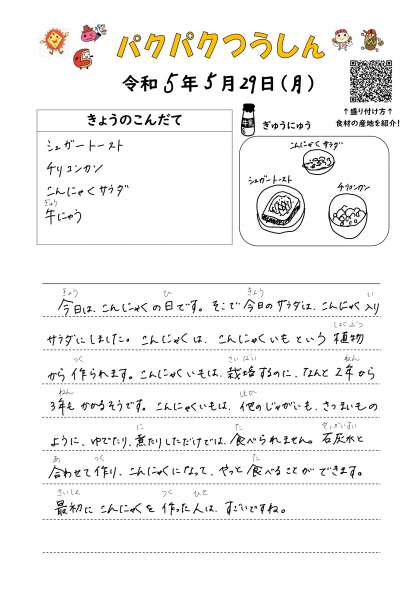 パクパクつうしん
令和5年5月29日(月)
↑盛り付け方↑
食材の産地を紹介!
きょうのこんだて
シュガートースト
チリコンカン
こんにゃくサラダ
ぎゅう
牛にゅう
ぎゅうにゅう
こんにゃくサラダ
シュガートースト
チリコンカン
きょう ひ きょう い
今日は、こんにゃくの日です。そこで今日のサラダは、こんにゃく入り
サラダにしました。こんにゃくは、こんにゃくいもという植物
しょくぶつ
つく さいばい ねん
から作られます。こんにゃくいもは、栽培するのに、なんと2年から
ねん ほか
3年もかかるそうです。こんにゃくいもは、他のじゃがいも、さつまいもの
に た せっかいすい
ように、ゆでたり、煮たりしただけでは、食べられません。石灰水と
あ つく た
合わせて作り、こんにゃくになって、やっと食べることができます。
さいしょ つく ひと
最初にこんにゃくを作った人は、すごいですね。